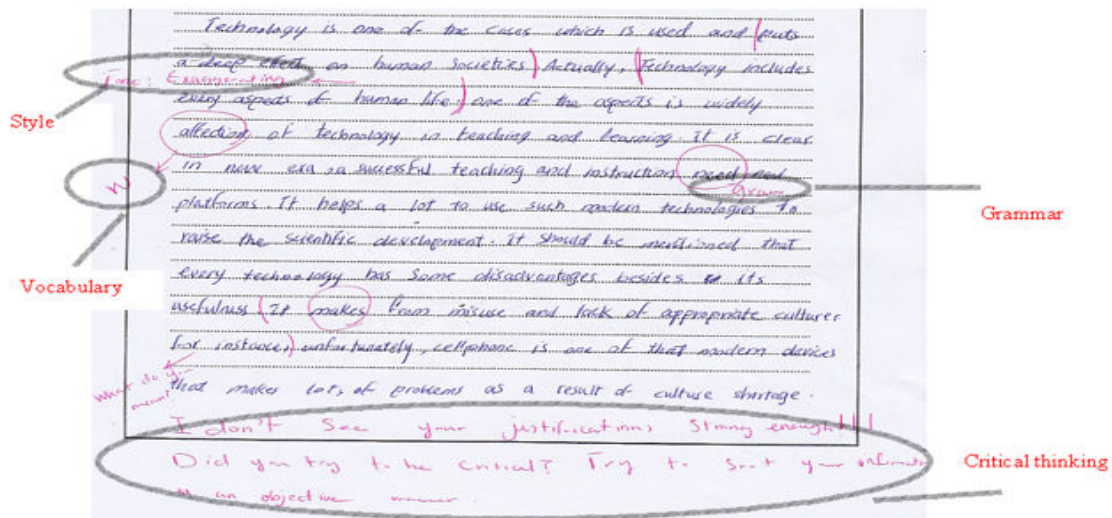 Technology is one of the cases which is used and (puts
a deep effect on human societies) Actually, (Technology includes
Tone: Exaggerating
every aspects of human life.) one of the aspects is widely
Style
affection of technology in teaching and learning. It is clear
in new era, a successful teaching and instruction need new
gram
Grammar
platforms. It helps a lot to use such modern technologies to
raise the scientific development. it should be mentioned that
every technology has some disadvantages besides its
Vocabulary
usefulness (It makes from misuse and lack of appropriate culture
for instance,) unfortunately, cellphone is one of that modern devices
What do you mean?
that makes lots of problems as a result of culture shortage.
I don't see your justifications strong enough!!!
Did you try to be critical? Try to sort your
Critical thinking
in an objective manner.